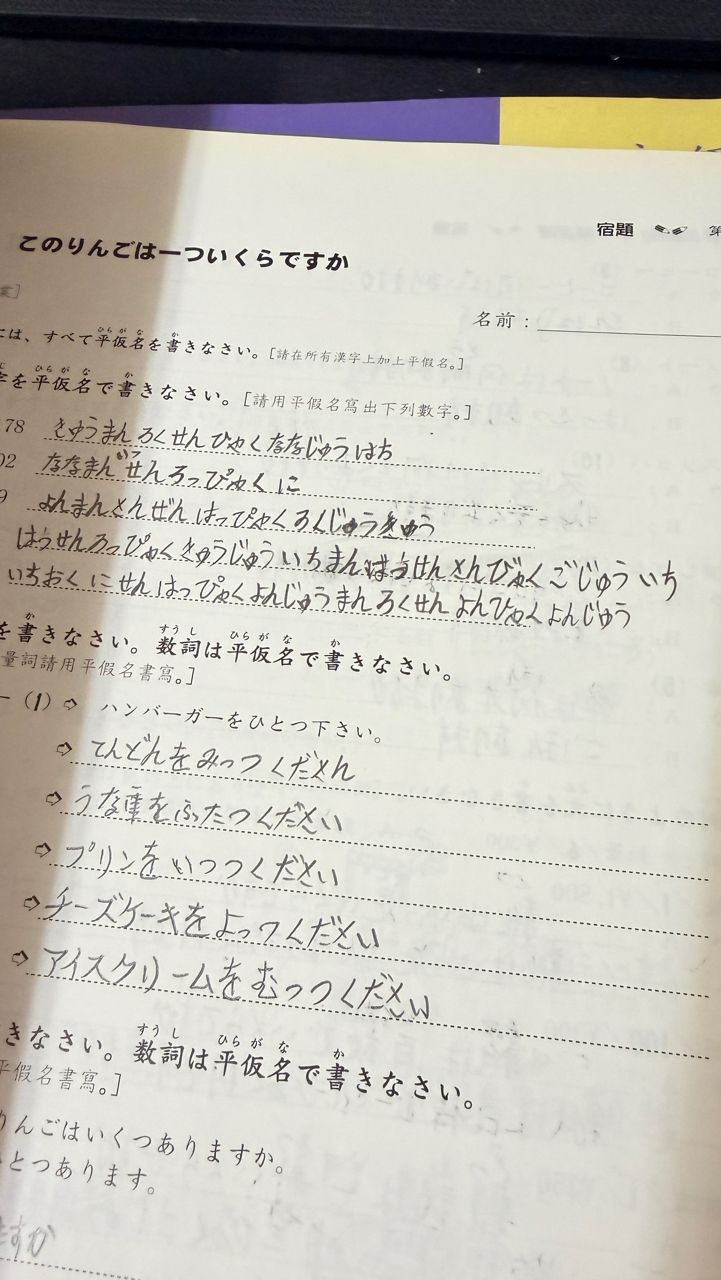 宿題 第
このりんごは一ついくらですか
名前：
には、すべて平仮名を書きなさい。[請在所有漢字上加上平假名。]
を平仮名で書きなさい。[請用平假名寫出下列數字。]
78 きゅうまんろくせんひゃくななじゅうはち
02 ななまんいっせんろっぴゃくに
9 よんまんさんぜんはっぴゃくろくじゅうきゅう
はっせんろっぴゃくきゅうじゅういちまんはっせんさんびゃくごじゅういち
いちおくにせんはっぴゃくよんじゅうまんろくせんよんひゃくよんじゅう
を書きなさい。数詞は平仮名で書きなさい。
量詞請用平假名書寫。]
ー (1) ⇨ ハンバーガーをひとつ下さい。
⇨ てんどんをみっつくださん
⇨ うな重をふたつください
⇨ プリンをいつつください
⇨ チーズケーキをよっつください
⇨ アイスクリームをむっつください
きなさい。数詞は平仮名で書きなさい。
平假名書寫。]
りんごはいくつありますか。
とつあります。
ますか